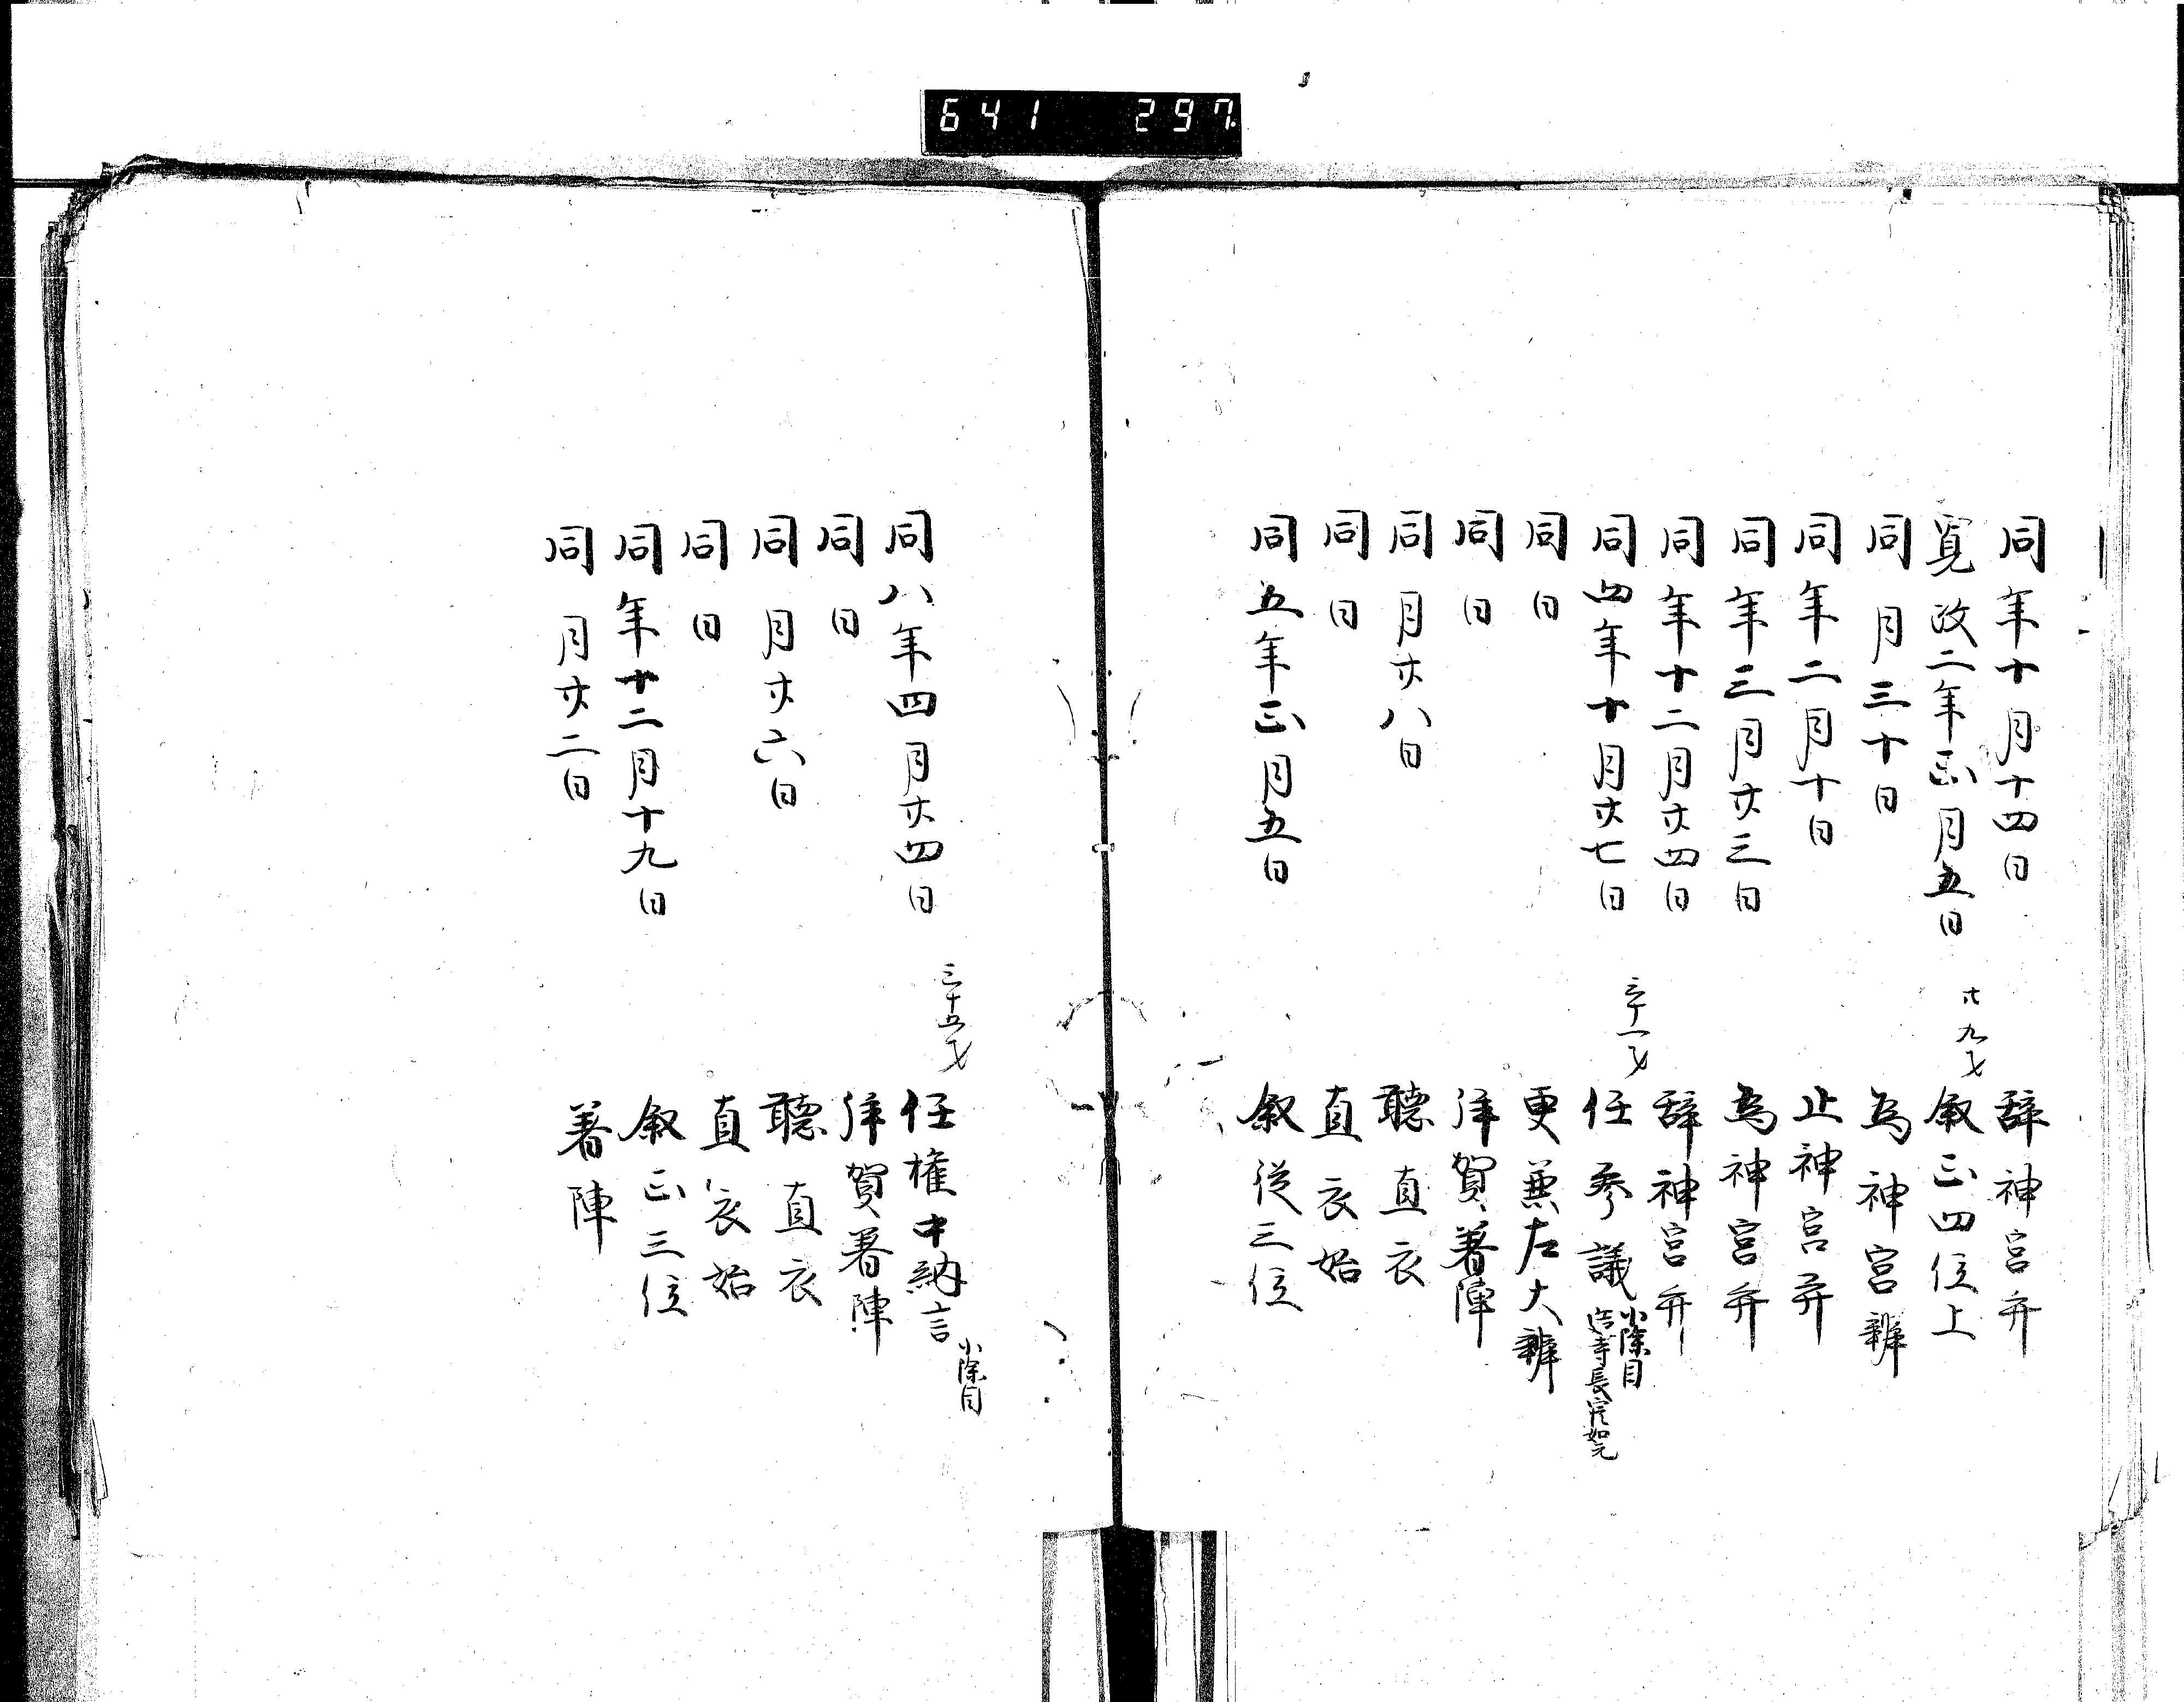 641 297
同年十月十四日 辞神宮弁
寛政二年正月五日 廿九才 叙正四位上
同月三十日 為神宮辨
同年二月十日 止神宮弁
同年三月廿三日 為神宮弁
同年十二月廿四日 辞神宮弁
同四年十月廿七日 三十一才 任参議 小除目 造寺長官如元
同日 更兼左大辨
同日 拝賀著陣
同月廿八日 聴直衣
同日 直衣始
同五年正月五日 叙従三位
同八年四月廿四日 三十五才 任権中納言 小除目
同日 拝賀著陣
同月廿六日 聴直衣
同日 直衣始
同年十二月十九日 叙正三位
同月廿二日 著陣